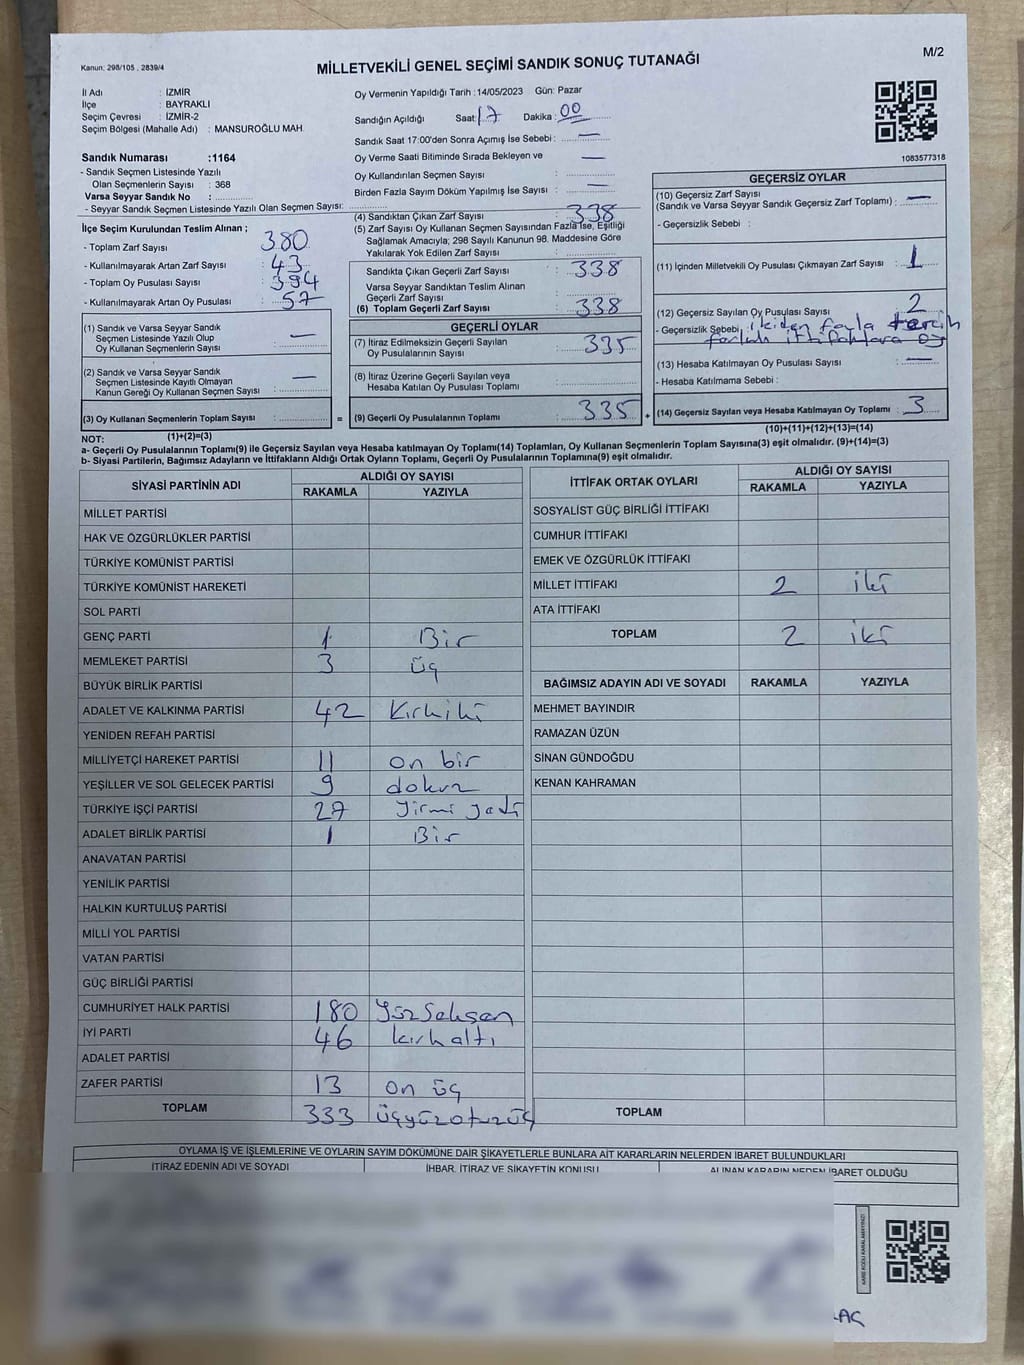 M/2
Kanun: 298/105 , 2839/4
MİLLETVEKİLİ GENEL SEÇİMİ SANDIK SONUÇ TUTANAĞI
İl Adı : İZMİR
İlçe : BAYRAKLI
Seçim Çevresi : İZMİR-2
Seçim Bölgesi (Mahalle Adı) : MANSUROĞLU MAH.
Oy Vermenin Yapıldığı Tarih :14/05/2023 Gün: Pazar
Sandığın Açıldığı Saat: 17 Dakika : 00
Sandık Saat 17:00'den Sonra Açımış İse Sebebi : —
Oy Verme Saati Bitiminde Sırada Bekleyen ve
Oy Kullandırılan Seçmen Sayısı : —
Birden Fazla Sayım Döküm Yapılmış İse Sayısı : —
1083577318
Sandık Numarası :1164
- Sandık Seçmen Listesinde Yazılı
Olan Seçmenlerin Sayısı : 368
Varsa Seyyar Sandık No :
- Seyyar Sandık Seçmen Listesinde Yazılı Olan Seçmen Sayısı:
İlçe Seçim Kurulundan Teslim Alınan ;
- Toplam Zarf Sayısı : 380
- Kullanılmayarak Artan Zarf Sayısı : 43
- Toplam Oy Pusulası Sayısı : 394
- Kullanılmayarak Artan Oy Pusulası : 57
(1) Sandık ve Varsa Seyyar Sandık
Seçmen Listesinde Yazılı Olup
Oy Kullanan Seçmenlerin Sayısı : —
(2) Sandık ve Varsa Seyyar Sandık
Seçmen Listesinde Kayıtlı Olmayan
Kanun Gereği Oy Kullanan Seçmen Sayısı : —
(3) Oy Kullanan Seçmenlerin Toplam Sayısı : =
(1)+(2)=(3)
(4) Sandıktan Çıkan Zarf Sayısı : 338
(5) Zarf Sayısı Oy Kullanan Seçmen Sayısından Fazla İse, Eşitliği
Sağlamak Amacıyla; 298 Sayılı Kanunun 98. Maddesine Göre
Yakılarak Yok Edilen Zarf Sayısı :
Sandıkta Çıkan Geçerli Zarf Sayısı : 338
Varsa Seyyar Sandıktan Teslim Alınan
Geçerli Zarf Sayısı :
(6) Toplam Geçerli Zarf Sayısı : 338
GEÇERLİ OYLAR
(7) İtiraz Edilmeksizin Geçerli Sayılan
Oy Pusulalarının Sayısı : 335
(8) İtiraz Üzerine Geçerli Sayılan veya
Hesaba Katılan Oy Pusulası Toplamı :
(9) Geçerli Oy Pusulalarının Toplamı : 335 +
GEÇERSİZ OYLAR
(10) Geçersiz Zarf Sayısı
(Sandık ve Varsa Seyyar Sandık Geçersiz Zarf Toplamı) : —
- Geçersizlik Sebebi :
(11) İçinden Milletvekili Oy Pusulası Çıkmayan Zarf Sayısı : 1
(12) Geçersiz Sayılan Oy Pusulası Sayısı : 2
- Geçersizlik Sebebi : ikiden fazla tercih
farklı ittifaklara oy
(13) Hesaba Katılmayan Oy Pusulası Sayısı : —
- Hesaba Katılmama Sebebi :
(14) Geçersiz Sayılan veya Hesaba Katılmayan Oy Toplamı : 3
(10)+(11)+(12)+(13)=(14)
NOT:
a- Geçerli Oy Pusulalarının Toplamı(9) ile Geçersiz Sayılan veya Hesaba katılmayan Oy Toplamı(14) Toplamları, Oy Kullanan Seçmenlerin Toplam Sayısına(3) eşit olmalıdır. (9)+(14)=(3)
b- Siyasi Partilerin, Bağımsız Adayların ve İttifakların Aldığı Ortak Oyların Toplamı, Geçerli Oy Pusulalarının Toplamına(9) eşit olmalıdır.
SİYASİ PARTİNİN ADI ALDIĞI OY SAYISI
RAKAMLA YAZIYLA
MİLLET PARTİSİ
HAK VE ÖZGÜRLÜKLER PARTİSİ
TÜRKİYE KOMÜNİST PARTİSİ
TÜRKİYE KOMÜNİST HAREKETİ
SOL PARTİ
GENÇ PARTİ 1 Bir
MEMLEKET PARTİSİ 3 üç
BÜYÜK BİRLİK PARTİSİ
ADALET VE KALKINMA PARTİSİ 42 Kırkiki
YENİDEN REFAH PARTİSİ
MİLLİYETÇİ HAREKET PARTİSİ 11 on bir
YEŞİLLER VE SOL GELECEK PARTİSİ 9 dokuz
TÜRKİYE İŞÇİ PARTİSİ 27 Yirmi yedi
ADALET BİRLİK PARTİSİ 1 Bir
ANAVATAN PARTİSİ
YENİLİK PARTİSİ
HALKIN KURTULUŞ PARTİSİ
MİLLİ YOL PARTİSİ
VATAN PARTİSİ
GÜÇ BİRLİĞİ PARTİSİ
CUMHURİYET HALK PARTİSİ 180 Yüz Seksen
İYİ PARTİ 46 kırkaltı
ADALET PARTİSİ
ZAFER PARTİSİ 13 on üç
TOPLAM 333 üçyüzotuzüç
İTTİFAK ORTAK OYLARI ALDIĞI OY SAYISI
RAKAMLA YAZIYLA
SOSYALİST GÜÇ BİRLİĞİ İTTİFAKI
CUMHUR İTTİFAKI
EMEK VE ÖZGÜRLÜK İTTİFAKI
MİLLET İTTİFAKI 2 iki
ATA İTTİFAKI
TOPLAM 2 iki
BAĞIMSIZ ADAYIN ADI VE SOYADI RAKAMLA YAZIYLA
MEHMET BAYINDIR
RAMAZAN ÜZÜN
SİNAN GÜNDOĞDU
KENAN KAHRAMAN
TOPLAM
OYLAMA İŞ VE İŞLEMLERİNE VE OYLARIN SAYIM DÖKÜMÜNE DAİR ŞİKAYETLERLE BUNLARA AİT KARARLARIN NELERDEN İBARET BULUNDUKLARI
İTİRAZ EDENİN ADI VE SOYADI İHBAR, İTİRAZ VE ŞİKAYETİN KONUSU ALINAN KARARIN NEDEN İBARET OLDUĞU
KARE KODU KARALAMAYINIZ!